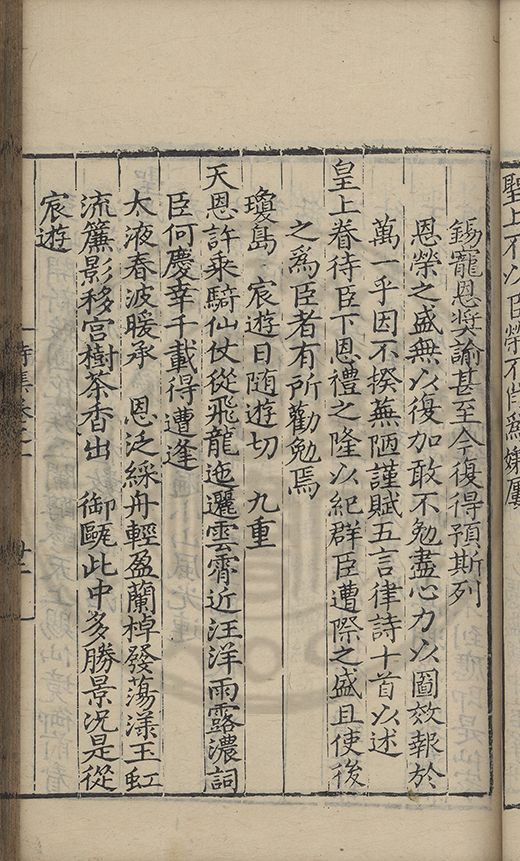 聖上不以臣榮不肖
錫寵恩奬諭甚至今復得預斯列
恩榮之盛無以復加敢不勉盡心力以圖效報於
萬一乎因不揆蕪陋謹賦五言律詩十首以述
皇上眷待臣下恩禮之隆以紀群臣遭際之盛且使後
之爲臣者有所勸勉焉
瓊島　宸遊日随遊切　九重
天恩許乘騎仙仗從飛龍迤邐雲霄近汪洋雨露濃詞
臣何慶幸千載得遭逢
太液春波暖承　恩泛綵舟輕盈蘭棹發蕩漾玉虹
流簾影移宮樹茶香出　御甌此中多勝景況是從
宸遊
詩集卷之